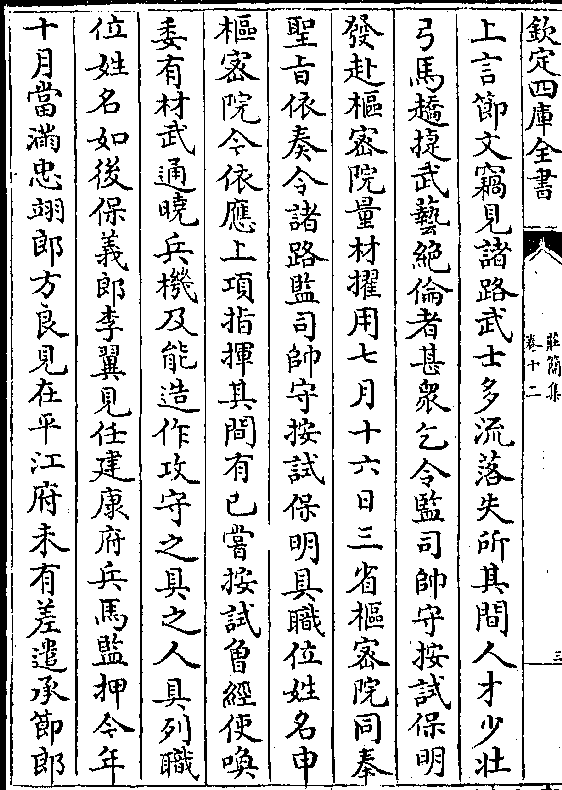 欽定四庫全書
莊簡集
卷十二
三
上言節文竊見諸路武士多流落失所其間人才少壯
弓馬趫捷武藝絶倫者甚衆乞令監司帥守按試保明
發赴樞宻院量材擢用七月十六日三省樞宻院同奉
聖旨依奏令諸路監司帥守按試保明具職位姓名申
樞宻院令依應上項指揮其間有已嘗按試曾經使喚
委有材武通曉兵機及能造作攻守之具之人具列職
位姓名如後保義郎李翼見任建康府兵馬監押今年
十月當滿忠翊郎方良見在平江府未有差遣承節郎